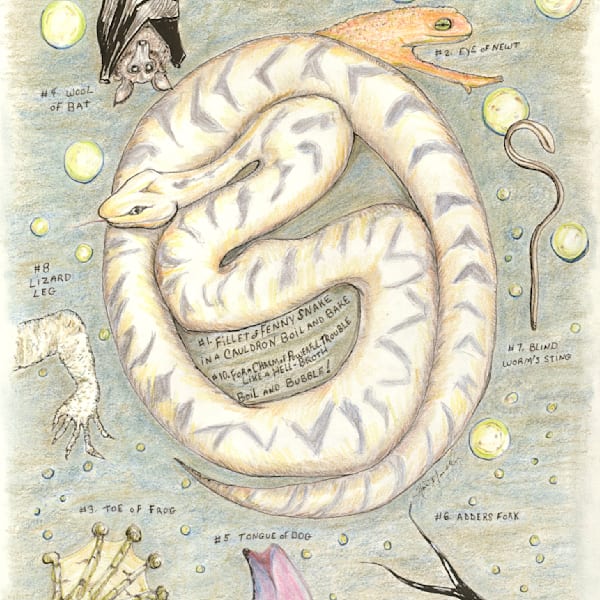 #2. EYE OF NEWT
#4. WOOL
OF BAT
#8
LIZARD
LEG
#1. FILLET of FENNY SNAKE
IN A CAULDRON BOIL AND BAKE
#10. FOR A CHARM of POWERFUL TROUBLE
LIKE A HELL-BROTH
BOIL AND BUBBLE!
#7. BLIND
WORM'S STING
#3. TOE OF FROG
#5. TONGUE of DOG
#6. ADDERS FORK